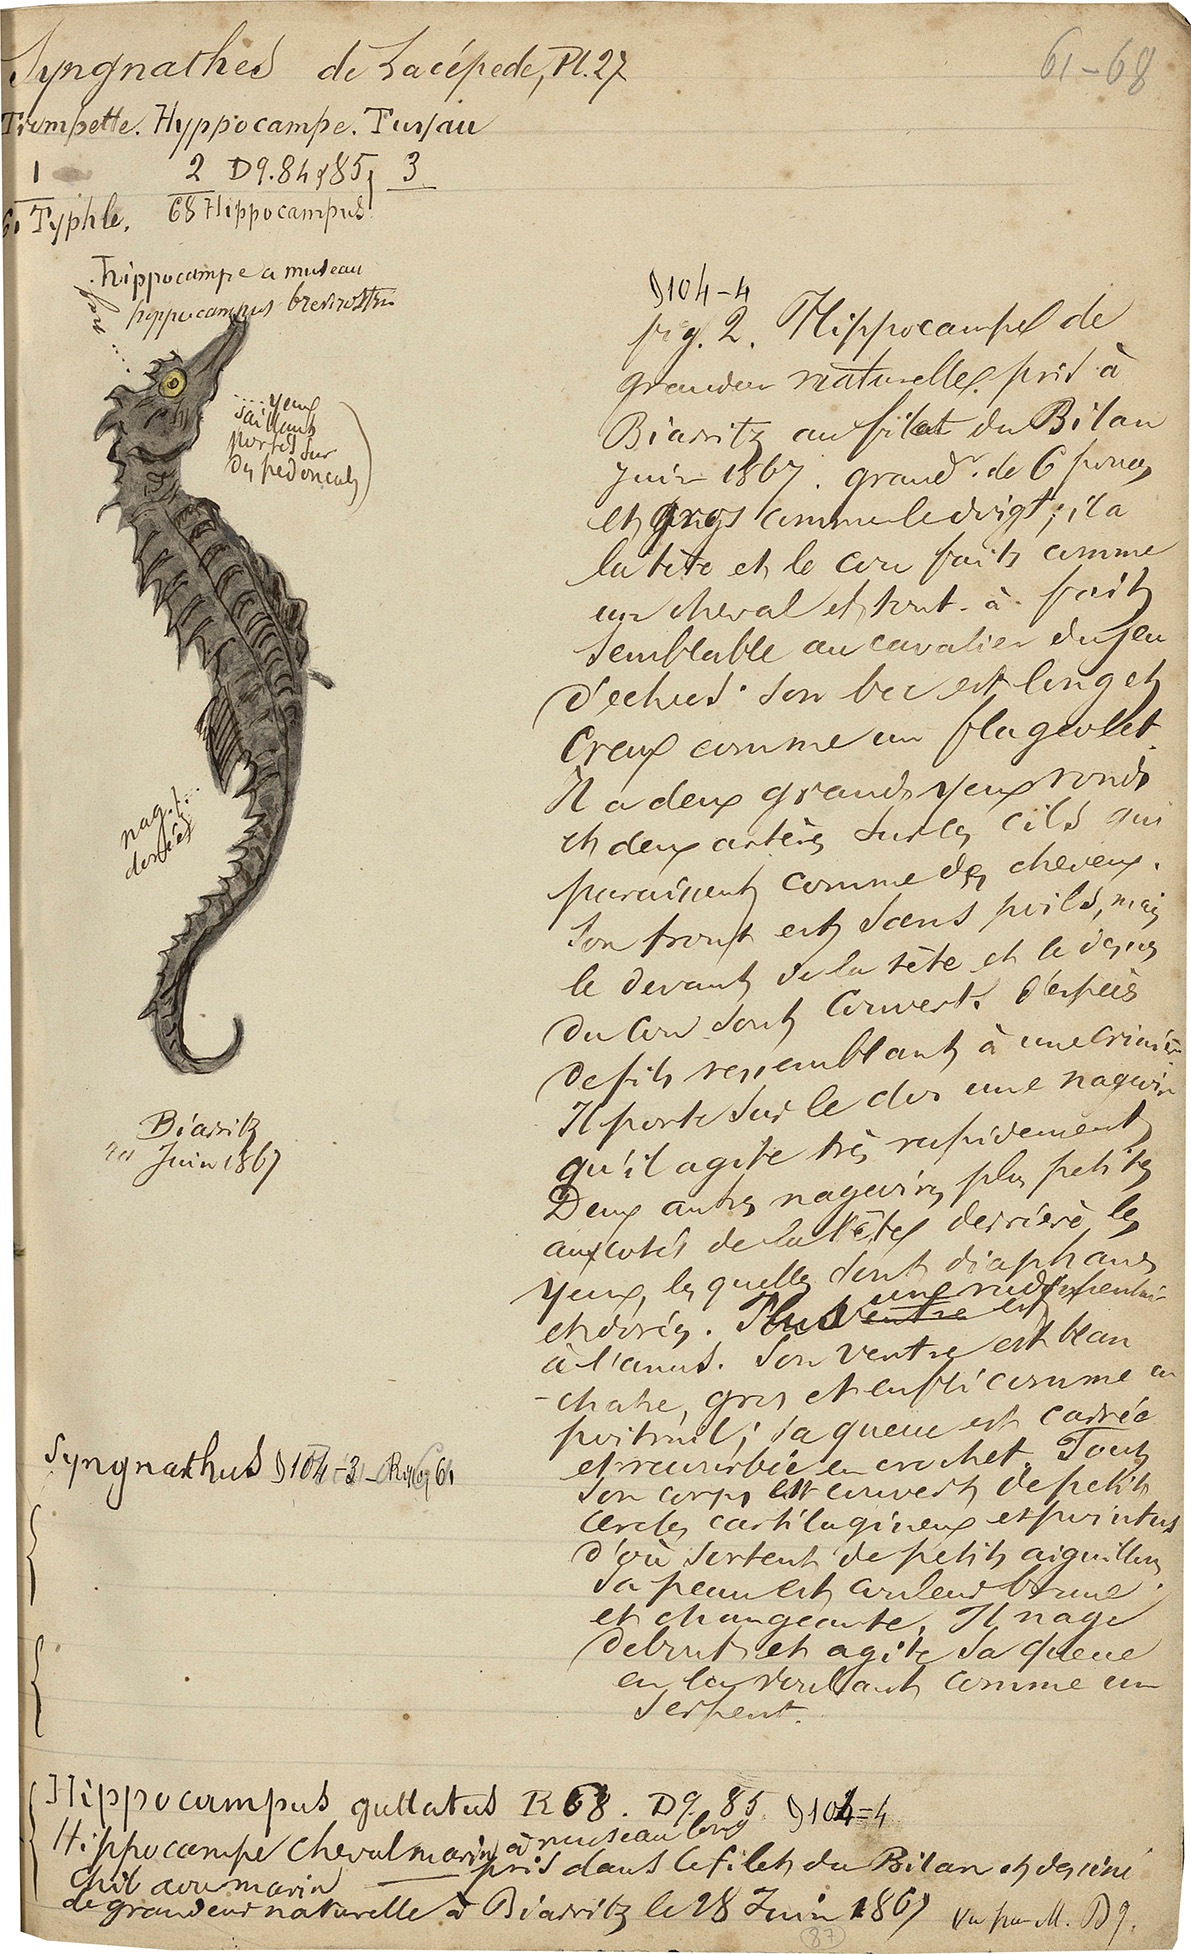 Syngnathes de Lacépede, Pl. 27
61-68
Trompette. Hyppocampe. Tuyau
1 2 D9.84 85 3
61 Typhle. 68 Hippocampus
hippocampe a museau
hippocampus brevirostris
.... yeux
saillants
portés sur
des pedoncules
nag. f...
dorsées
Biarritz
Juin 1867
104-4
fig. 2. Hippocampe de
grandeur naturelle. pris à
Biarritz au filet du Bilan
Juin 1867. grandr. de 6 pouces
et gros comme le doigt; il a
la tête et le cou faits comme
un cheval et tout-à-fait
semblable au cavalier du jeu
d'echecs. Son bec est long et
creux comme un flageolet.
Il a deux grands yeux ronds
et deux artères sur les cils qui
paraissent comme des cheveux.
Son front est sans poils, mais
le devant de la tête et le dessus
du cou sont couverts d'espèces
de fils ressemblant à une crinière
Il porte sur le dos une nageoire
qu'il agite très rapidement
Deux autres nageoires plus petites
aux cotés de la tête derrière les
yeux, lesquelles sont diaphanes
et dorées. Plus une rudimentaire
à l'anus. Son ventre est blan
-chatre, gros et enflé comme un
poitrail; sa queue est carrée
et recourbée en crochet. Tout
son corps est couvert de petits
cercles cartilagineux et pointus
d'où sortent de petits aiguillons
Sa peau est couleur brune
et changeante. Il nage
debout et agite sa queue
en la roulant comme un
serpent.
Syngnathus 104-3 - R 61
Hippocampus guttatus R 68. D9. 85 104=4
Hippocampe Cheval marin à museau long
pris dans le filet du Bilan et dessiné
marin
de grandeur naturelle à Biarritz le 28 Juin 1867 Vu par M. D9.
87